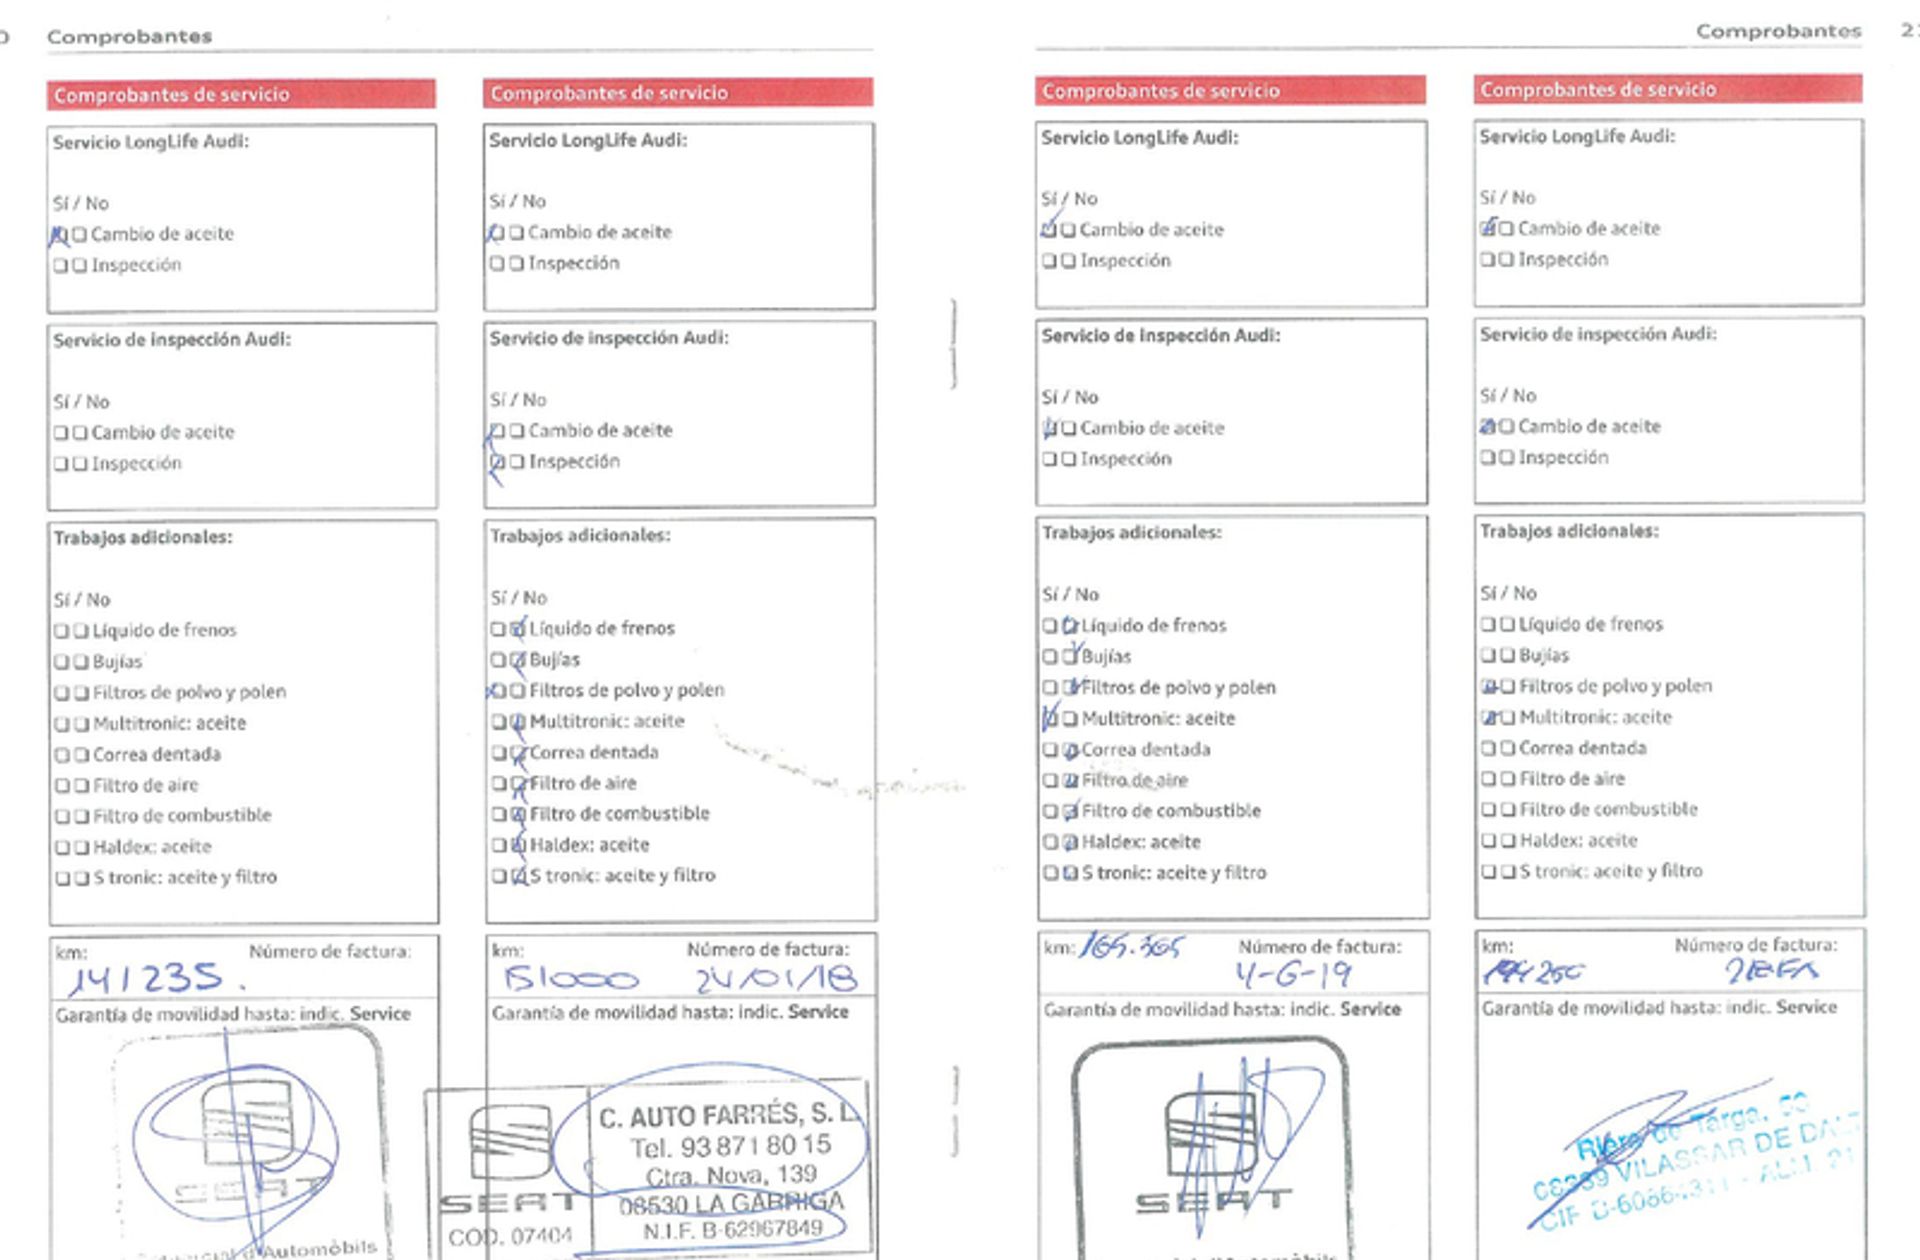 Comprobantes
Comprobantes de servicio
Servicio LongLife Audi:
Sí / No
Cambio de aceite
Inspección
Servicio de inspección Audi:
Sí / No
Cambio de aceite
Inspección
Trabajos adicionales:
Sí / No
Líquido de frenos
Bujías
Filtros de polvo y polen
Multitronic: aceite
Correa dentada
Filtro de aire
Filtro de combustible
Haldex: aceite
S tronic: aceite y filtro
km: Número de factura:
141235.
Garantía de movilidad hasta: indic. Service
SEAT
Automòbils
Comprobantes de servicio
Servicio LongLife Audi:
Sí / No
Cambio de aceite
Inspección
Servicio de inspección Audi:
Sí / No
Cambio de aceite
Inspección
Trabajos adicionales:
Sí / No
Líquido de frenos
Bujías
Filtros de polvo y polen
Multitronic: aceite
Correa dentada
Filtro de aire
Filtro de combustible
Haldex: aceite
S tronic: aceite y filtro
km: Número de factura:
151000 24/01/18
Garantía de movilidad hasta: indic. Service
SEAT
COD. 07404
C. AUTO FARRÉS, S. L.
Tel. 93 871 80 15
Ctra. Nova, 139
08530 LA GARRIGA
N.I.F. B-62967849
Comprobantes
Comprobantes de servicio
Servicio LongLife Audi:
Sí / No
Cambio de aceite
Inspección
Servicio de Inspección Audi:
Sí / No
Cambio de aceite
Inspección
Trabajos adicionales:
Sí / No
Líquido de frenos
Bujías
Filtros de polvo y polen
Multitronic: aceite
Correa dentada
Filtro de aire
Filtro de combustible
Haldex: aceite
S tronic: aceite y filtro
km: 165.365 Número de factura:
4-6-19
Garantía de movilidad hasta: indic. Service
SEAT
Comprobantes de servicio
Servicio LongLife Audi:
Sí / No
Cambio de aceite
Inspección
Servicio de inspección Audi:
Sí / No
Cambio de aceite
Inspección
Trabajos adicionales:
Sí / No
Líquido de frenos
Bujías
Filtros de polvo y polen
Multitronic: aceite
Correa dentada
Filtro de aire
Filtro de combustible
Haldex: aceite
S tronic: aceite y filtro
km: Número de factura:
Garantía de movilidad hasta: indic. Service
Targa,
VILASSAR DE
CIF